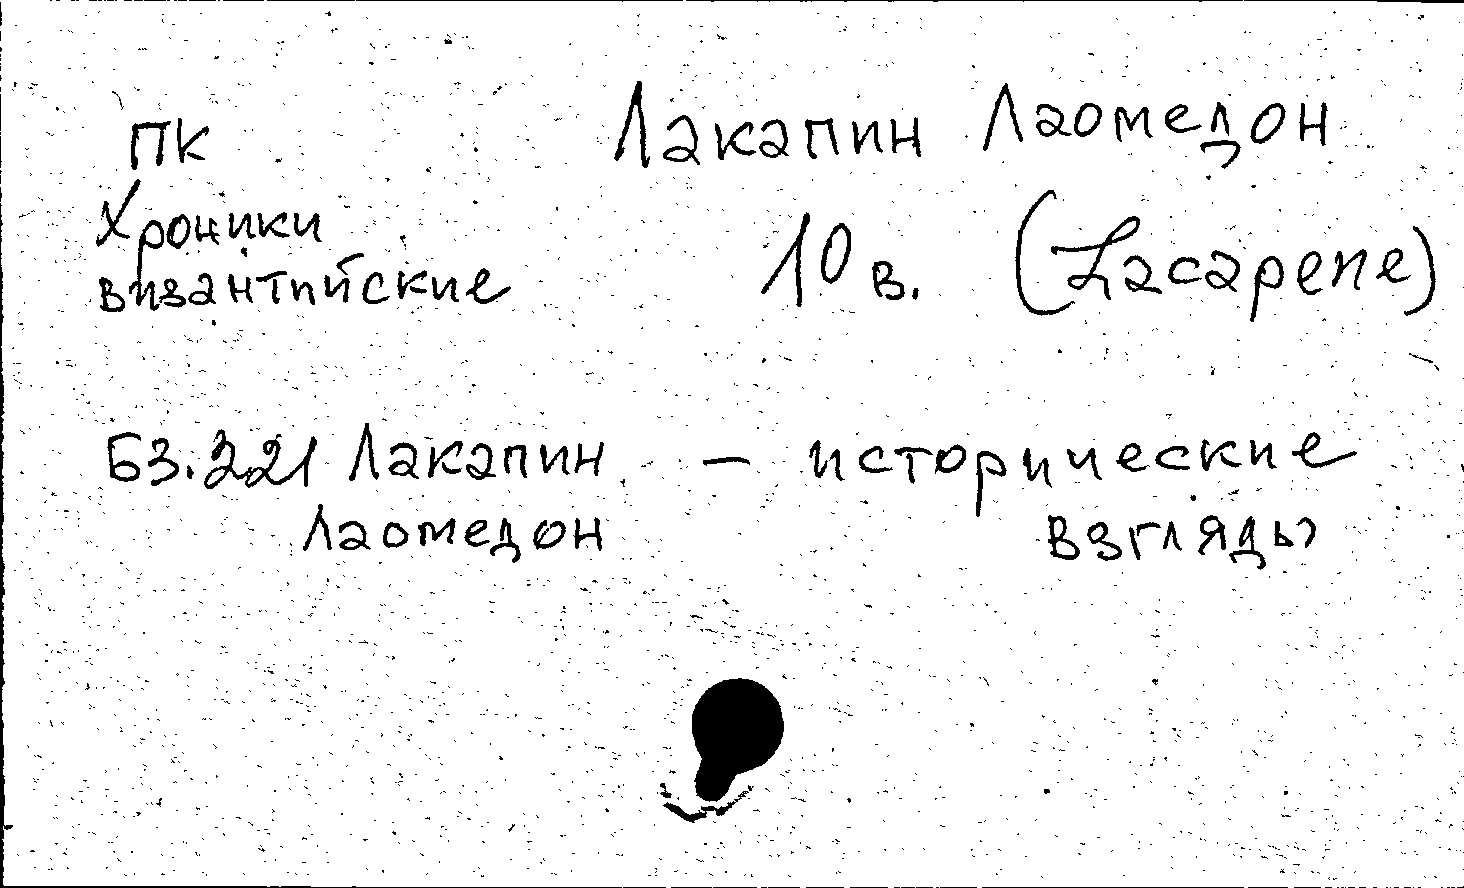 ПК Лакапин Лаомедон
Хроники 10 в. (Lacapene)
византийские
Б3.321 Лакапин - исторические
Лаомедон взгляды